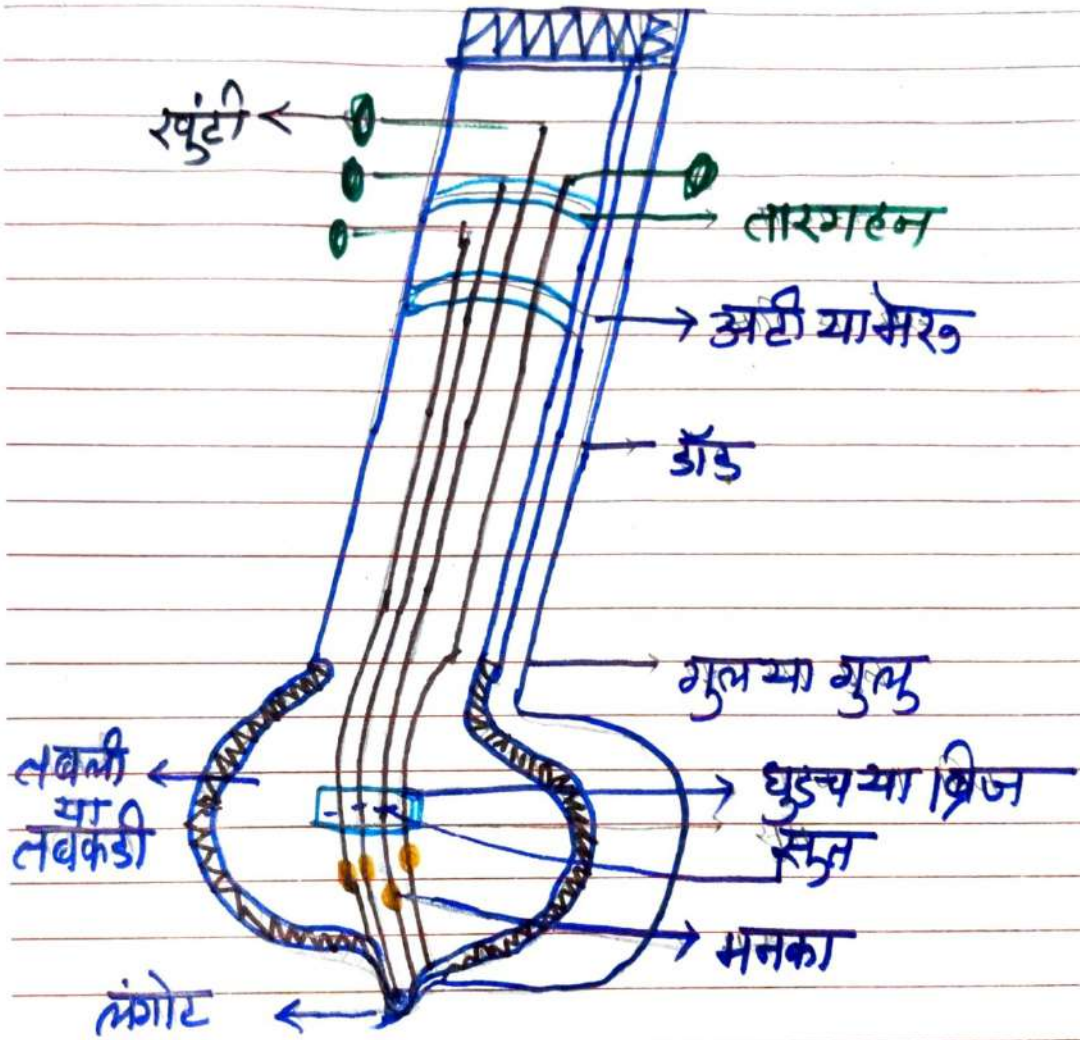 खुंटी
तारगहन
अटी या मेरु
डॉड
गुल या गुलु
तबली
या
तबकडी
घुडच या ब्रिज
सुत
मनका
लंगोट